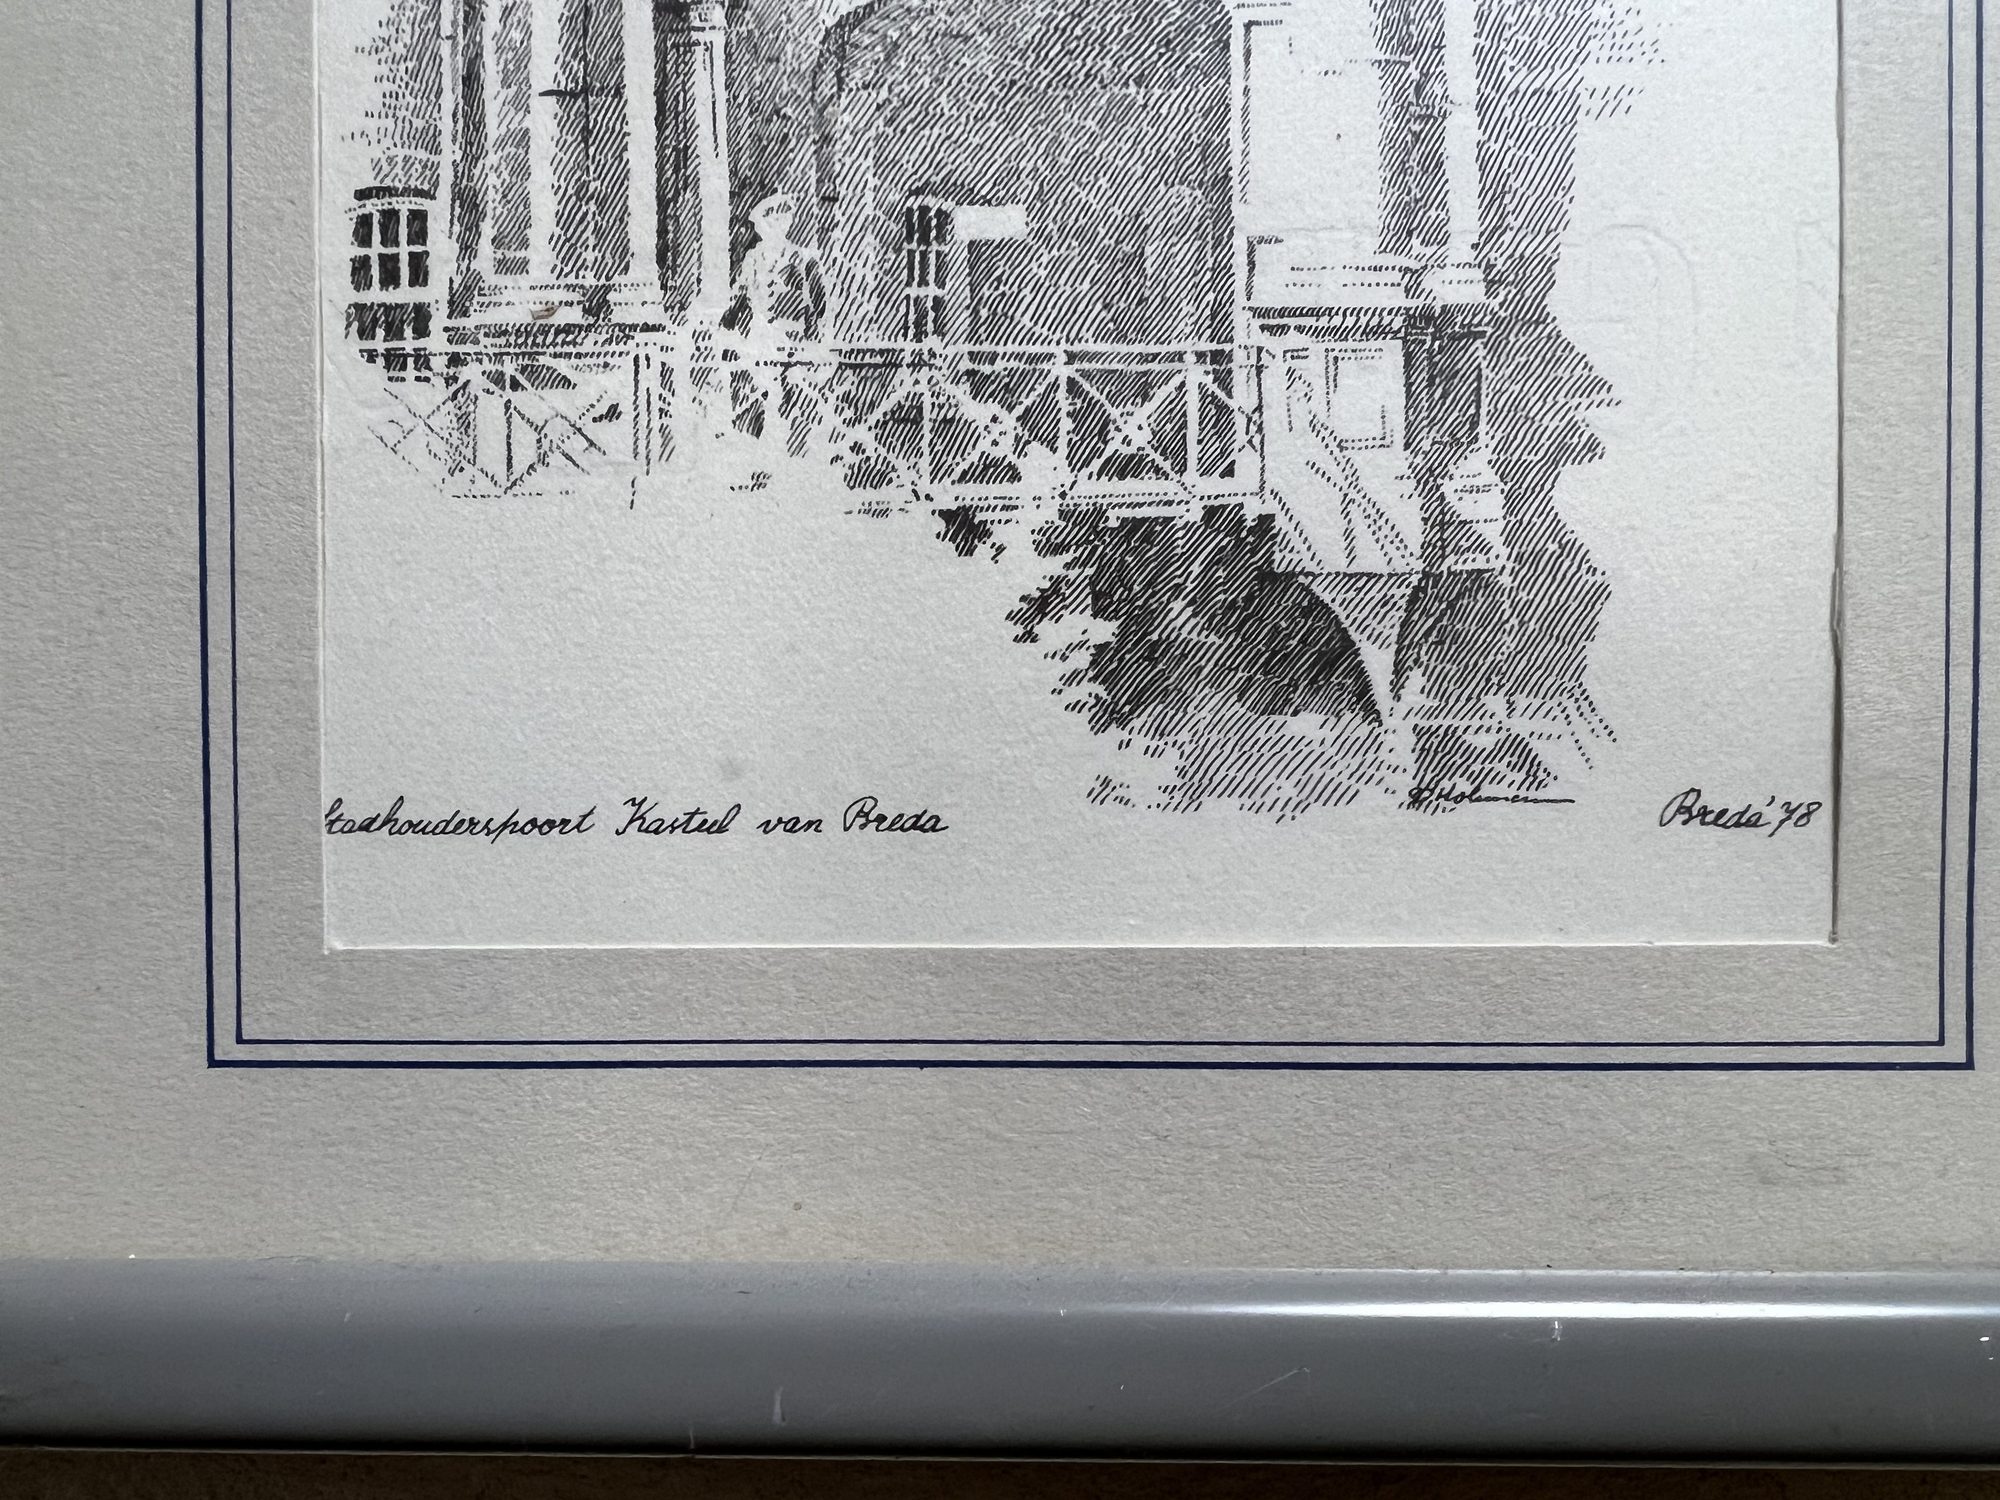 Stadhouderspoort Kasteel van Breda
Breda '78